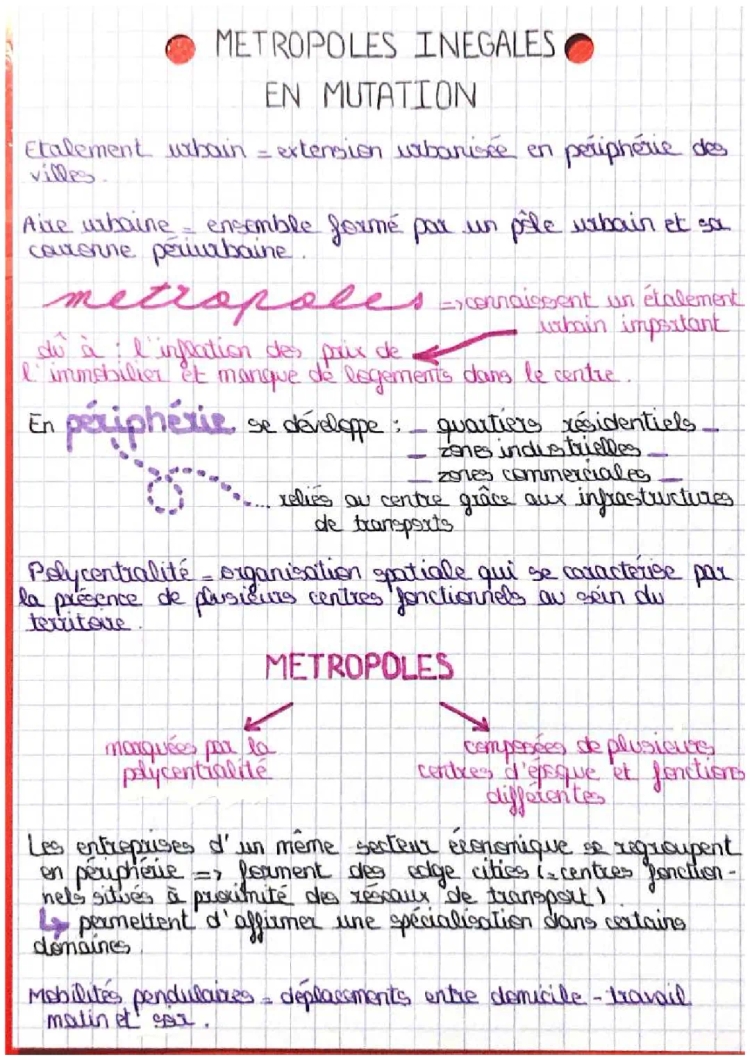 METROPOLES INEGALES
EN MUTATION
Etalement urbain = extension urbanisée en périphérie des
villes.
Aire urbaine = ensemble formé par un pôle urbain et sa
couronne périurbaine.
metropoles => connaissent un étalement
urbain important
dû à : l'inflation des prix de
l'immobilier et manque de logements dans le centre.
En périphérie se développe : _ quartiers résidentiels _
_ zones industrielles _
_ zones commerciales _
... reliés au centre grâce aux infrastructures
de transports
Polycentralité = organisation spatiale qui se caractérise par
la présence de plusieurs centres fonctionnels au sein du
territoire.
METROPOLES
marquées par la
polycentralité
composées de plusieurs
centres d'époque et fonctions
différentes
Les entreprises d'un même secteur économique se regroupent
en périphérie => forment des edge cities (= centres fonction-
nels situés à proximité des réseaux de transport)
↳ permettent d'affirmer une spécialisation dans certains
domaines
Mobilités pendulaires = déplacements entre domicile - travail
matin et soir.